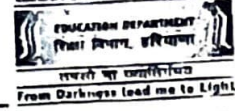 EDUCATION DEPARTMENT
शिक्षा विभाग, हरियाणा
तमसो मा ज्योतिर्गमय
From Darkness lead me to Light